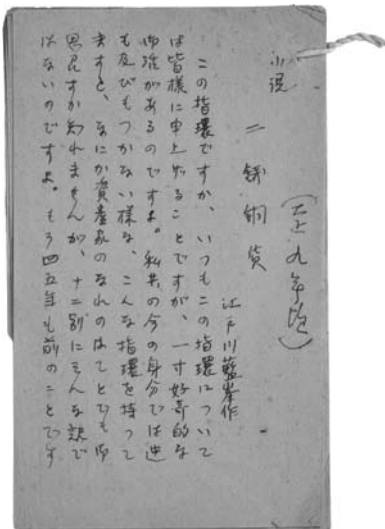 (大正九年頃)
小説 二銭銅貨
江戸川藍峯作
この指環ですか、いつもこの指環について
は皆様に申上げることですが、一寸好奇的な
御話があるのですよ。私共の今の身分では迚
も及びもつかない様な、こんな指環を持って
ますと、なにか資産家のなれのはてとでも御
思召すか知れませんが、ナニ別にそんな訳で
はないのですよ。もう四五年も前のことです